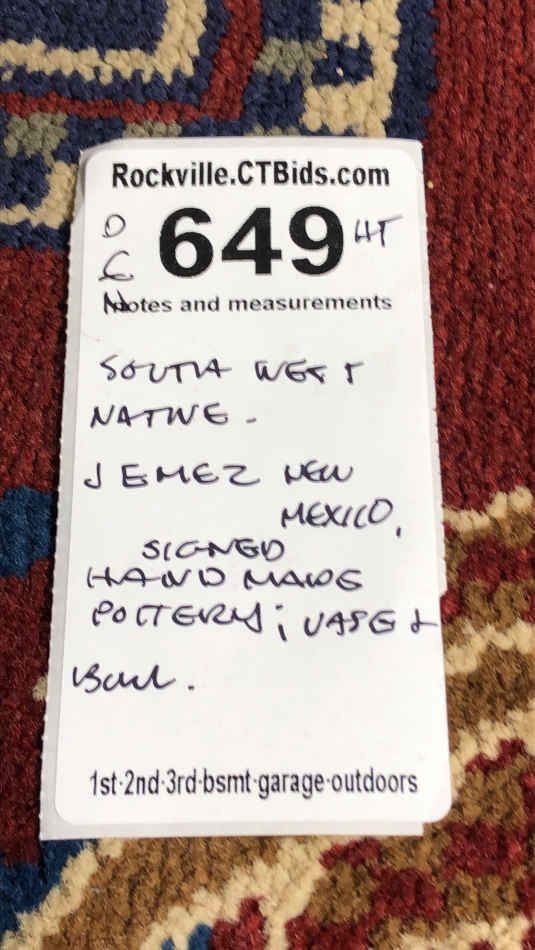 Rockville.CTBids.com
D 649 HT
C
N
Notes and measurements
SOUTH WEST
NATIVE -
JEMEZ NEW
MEXICO,
SIGNED
HAND MADE
POTTERY; VASE &
Bowl.
1st-2nd-3rd-bsmt-garage-outdoors